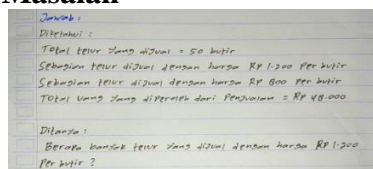 Masalah
Jawab :
Diketahui :
Total telur yang dijual = 50 butir
Sebagian telur dijual dengan harga Rp 1.200 Per butir
Sebagian telur dijual dengan harga Rp 800 Per butir
Total uang yang diperoleh dari Penjualan = Rp 48.000
Ditanya :
Berapa banyak telur yang dijual dengan harga Rp 1.200
Per butir ?